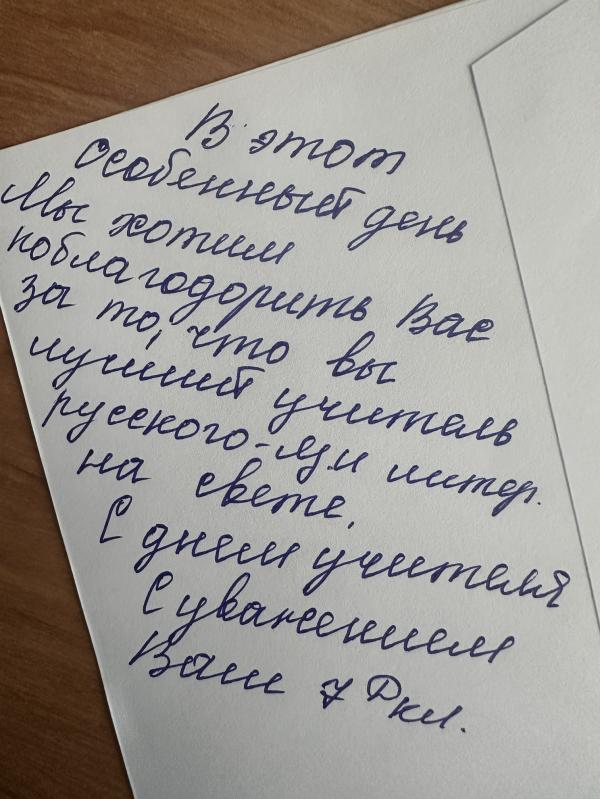 В этот
Особенный день
Мы хотим
поблагодорить Вас
за то, что вы
лучший учитель
русского-яз. и литер.
на свете.
С днём учителя
С уважением
Ваш 7 Д кл.